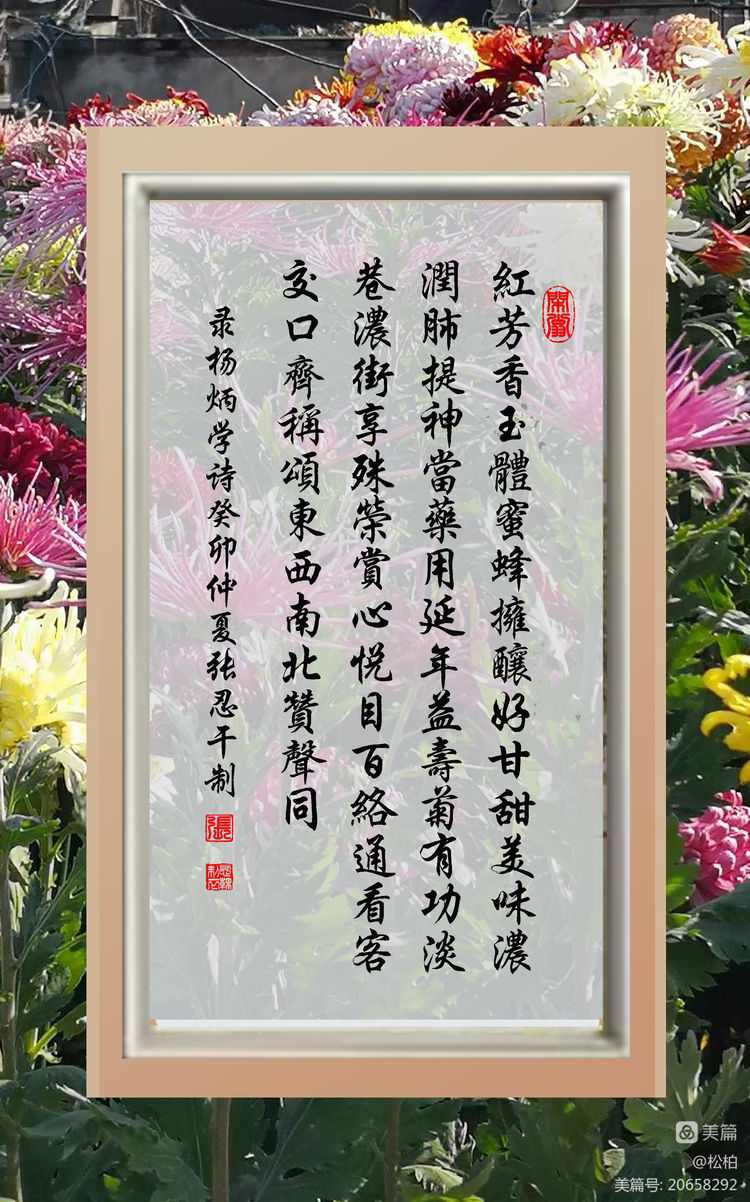 紅芳香玉體蜜蜂擁釀好甘甜美味濃
潤肺提神當藥用延年益壽菊有功淡
巷濃街享殊榮賞心悅目百絡通看客
交口齊稱頌東西南北贊聲同
录杨炳学诗癸卯仲夏张忍干制
張
美篇
@松柏
美篇号: 20658292